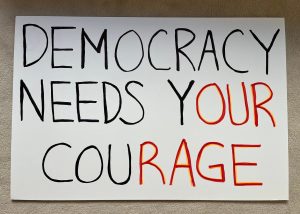 DEMOCRACY
NEEDS YOUR
COURAGE